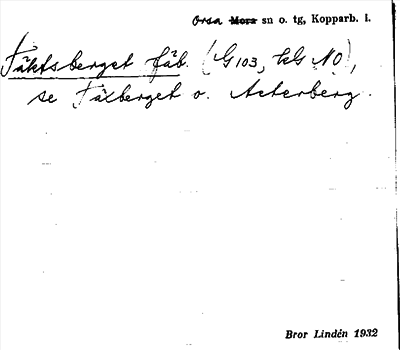 Orsa Mora sn o. tg, Kopparb. l.
Täktsberget fäb. (G 103, kG NO),
se Täxberget o. Acterberg.
Bror Lindén 1932